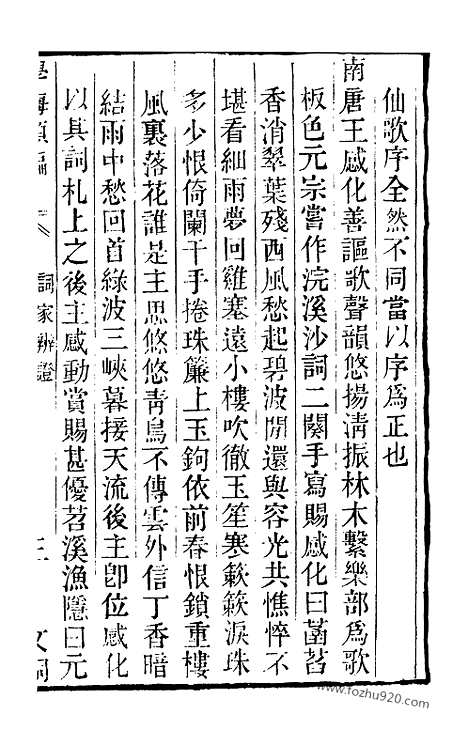 仙歌序全然不同當以序爲正也
南唐王感化善謳歌聲韻悠揚淸振林木繫樂部爲歌
板色元宗嘗作浣溪沙詞二闋手寫賜感化曰菡萏
香消翠葉殘西風愁起碧波閒還與容光共憔悴不
堪看細雨夢回雞塞遠小樓吹徹玉笙寒簌簌淚珠
多少恨倚闌干手捲珠簾上玉鉤依前春恨鎖重樓
風裏落花誰是主思悠悠靑鳥不傳雲外信丁香暗
結雨中愁回首綠波三峽暮接天流後主卽位感化
以其詞札上之後主感動賞賜甚優苕溪漁隱曰元
詞家辨證
www.fozhu920.com